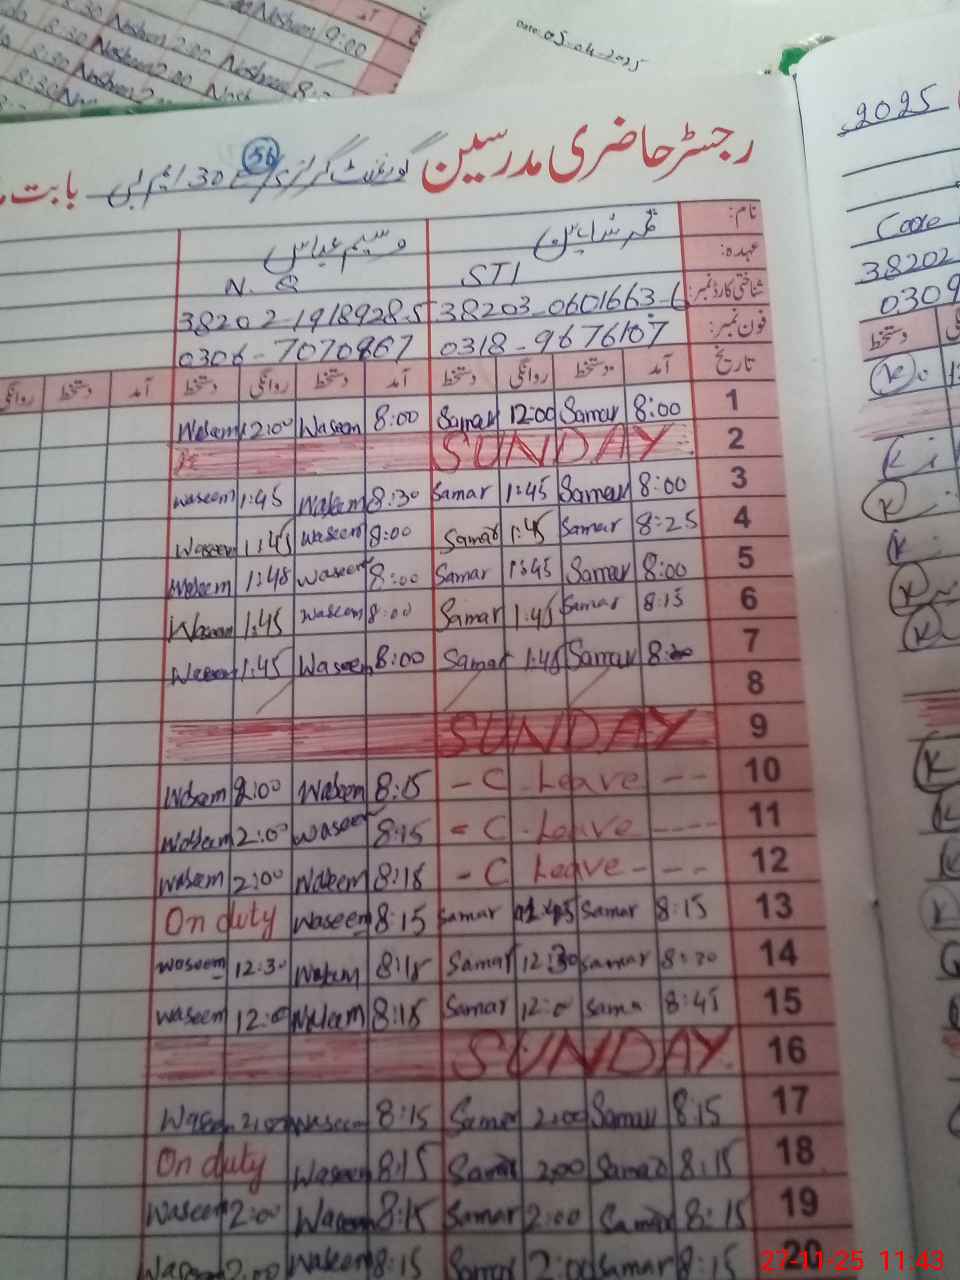 8:30 Nosheen 2:00 Nosheen 9:00
8:30 Nosheen 2:00 Nosheen
Date: 05-04-2025
رجسٹر حاضری مدرسین گورنمنٹ گرلز 30 ایم بی بابت
56
2025
نام:
وسیم عباس
عہدہ: STI
N.Q
شناختی کارڈ نمبر: 38203-0601663-6
38202-1918928-5
38202
فون نمبر: 0318-9676107
0306-7070867
0309
تاریخ آمد دستخط روانگی دستخط آمد دستخط روانگی دستخط آمد دستخط روانگی
دستخط
1 8:00 Samar 12:00 Samar 8:00 Waseem 12:00 Waseem
2 SUNDAY
3 8:00 Samar 1:45 Samar 8:30 Waseem 1:45 Waseem
4 8:25 Samar 1:45 Samar 8:00 Waseem 1:45 Waseem
5 8:00 Samar 1:45 Samar 8:00 Waseem 1:48 Waseem
6 8:15 Samar 1:45 Samar 8:00 Waseem 1:45 Waseem
7 Samar 1:45 Samar 8:00 Waseem 1:45 Waseem
8
9 SUNDAY
10 - C. Leave -- 8:15 Waseem 2:00 Waseem
11 - C. Leave ---- 8:15 Waseem 2:00 Waseem
12 - C Leave --- 8:15 Waseem 2:00 Waseem
13 8:15 Samar Samar 8:15 Waseem On duty
14 8:30 Samar 12:30 Samar 8:15 Waseem 12:30 Waseem
15 8:45 Samar 12:0 Samar 8:15 Waseem 12:0 Waseem
16 SUNDAY
17 8:15 Samar 2:00 Samar 8:15 Waseem 2:00 Waseem
18 8:15 Samar 2:00 Samar 8:15 Waseem On duty
19 8:15 Samar 2:00 Samar 8:15 Waseem 2:00 Waseem
20 8:15 Samar 2:00 Samar 8:15 Waseem 2:00 Waseem
27-11-25 11:43